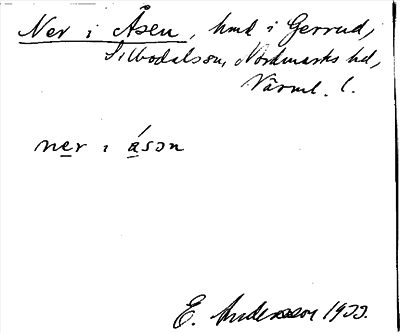 Ner i Åsen, hmd i Gerrud,
Silbodals sn, Nordmarks hd,
Värml. l.
ner i ásɔn
E. Andersson 1933.